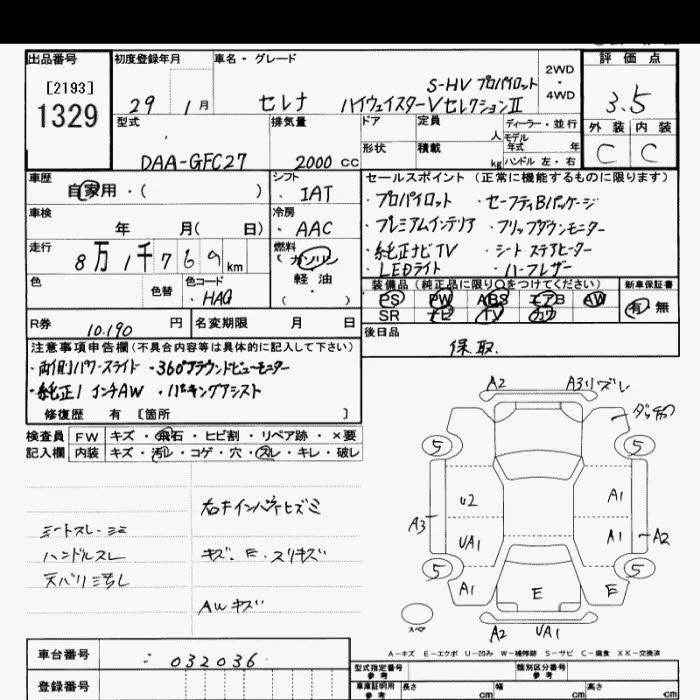 出品番号
[2193]
1329
初度登録年月
29 1月
車名・グレード
S-HV プロパイロット
セレナ ハイウェイスターVセレクションⅡ
2WD
・
4WD
評価点
3.5
外装 内装
C C
型式
DAA-GFC27
排気量
2000 CC
ドア
形状
定員 人
積載 kg
ディーラー・並行
モデル
年式 年
ハンドル 左・右
車歴
自家用・( )
シフト
IAT
車検
年 月( 日)
冷房
AAC
走行
8万1千769km
燃料
(ガソリン
軽油
・ )
色
色替
色コード
HAG
R券
10.190 円
名変期限 月 日
セールスポイント (正常に機能するものに限ります)
・プロパイロット ・セーフティBパッケージ
・プレミアムインテリア ・フリップダウンモニター
・純正ナビTV ・シートステアヒーター
・LEDライト ・ハーフレザー
装備品 (純正品に限り○をつけてください)
PS PW ABS エアB AW
SR ナビ TV カワ
新車保証書
有 無
後日品
保.取.
注意事項申告欄(不具合内容等は具体的に記入して下さい)
・両側パワースライド ・360°アラウンドビューモニター
・純正 インチAW ・パーキングアシスト
修復歴 有 [箇所 ]
検査員
記入欄
FW キズ・飛石・ヒビ割・リペア跡・×要
内装 キズ・汚レ・コゲ・穴・スレ・キレ・破レ
シートスレ・シミ
ハンドルスレ
天バリ汚レ
キズ・E・スリキズ
AWキズ
A2 A3リズレ
5 5
U2 A1
A3 UA1 A1 A2
5 5
A1 E E
A2 UA1
スペア
A-キズ E-エクボ U-凹み W-補修跡 S-サビ C-腐食 XX-交換済
車台番号
032036
登録番号
型式指定番号
参考
類別区分番号
参考
車庫証明用
参考
長さ cm
幅 cm
高さ cm